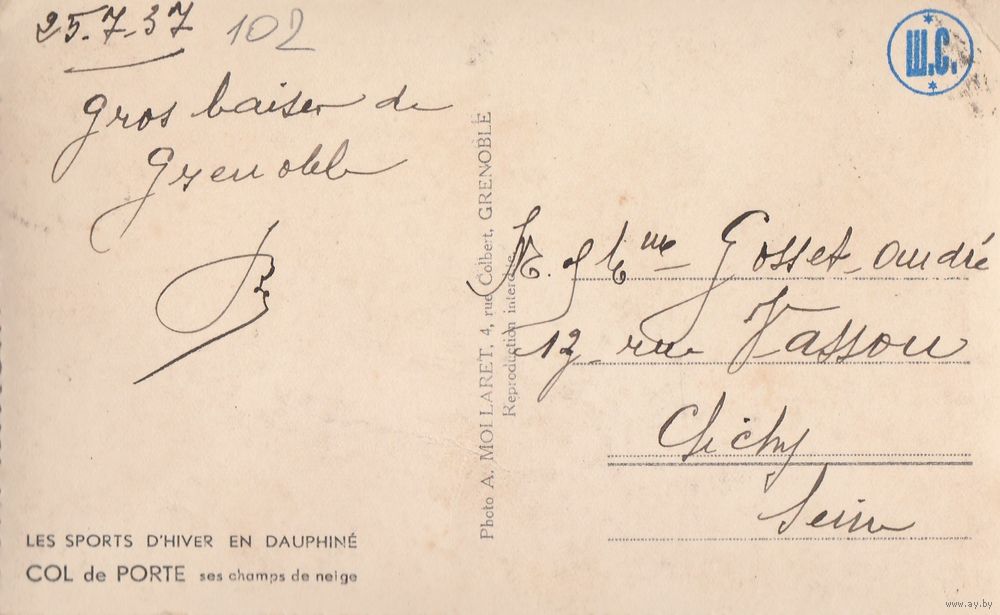 25.7.37 102
Gros baiser de
Grenoble
LES SPORTS D'HIVER EN DAUPHINÉ
COL de PORTE ses champs de neige
Photo A. MOLLARET, 4, rue Colbert, GRENOBLE
Reproduction interdite
Ш.С.
M. et Mme Gosset André
rue Vassou
Clichy
Seine
www.ay.by